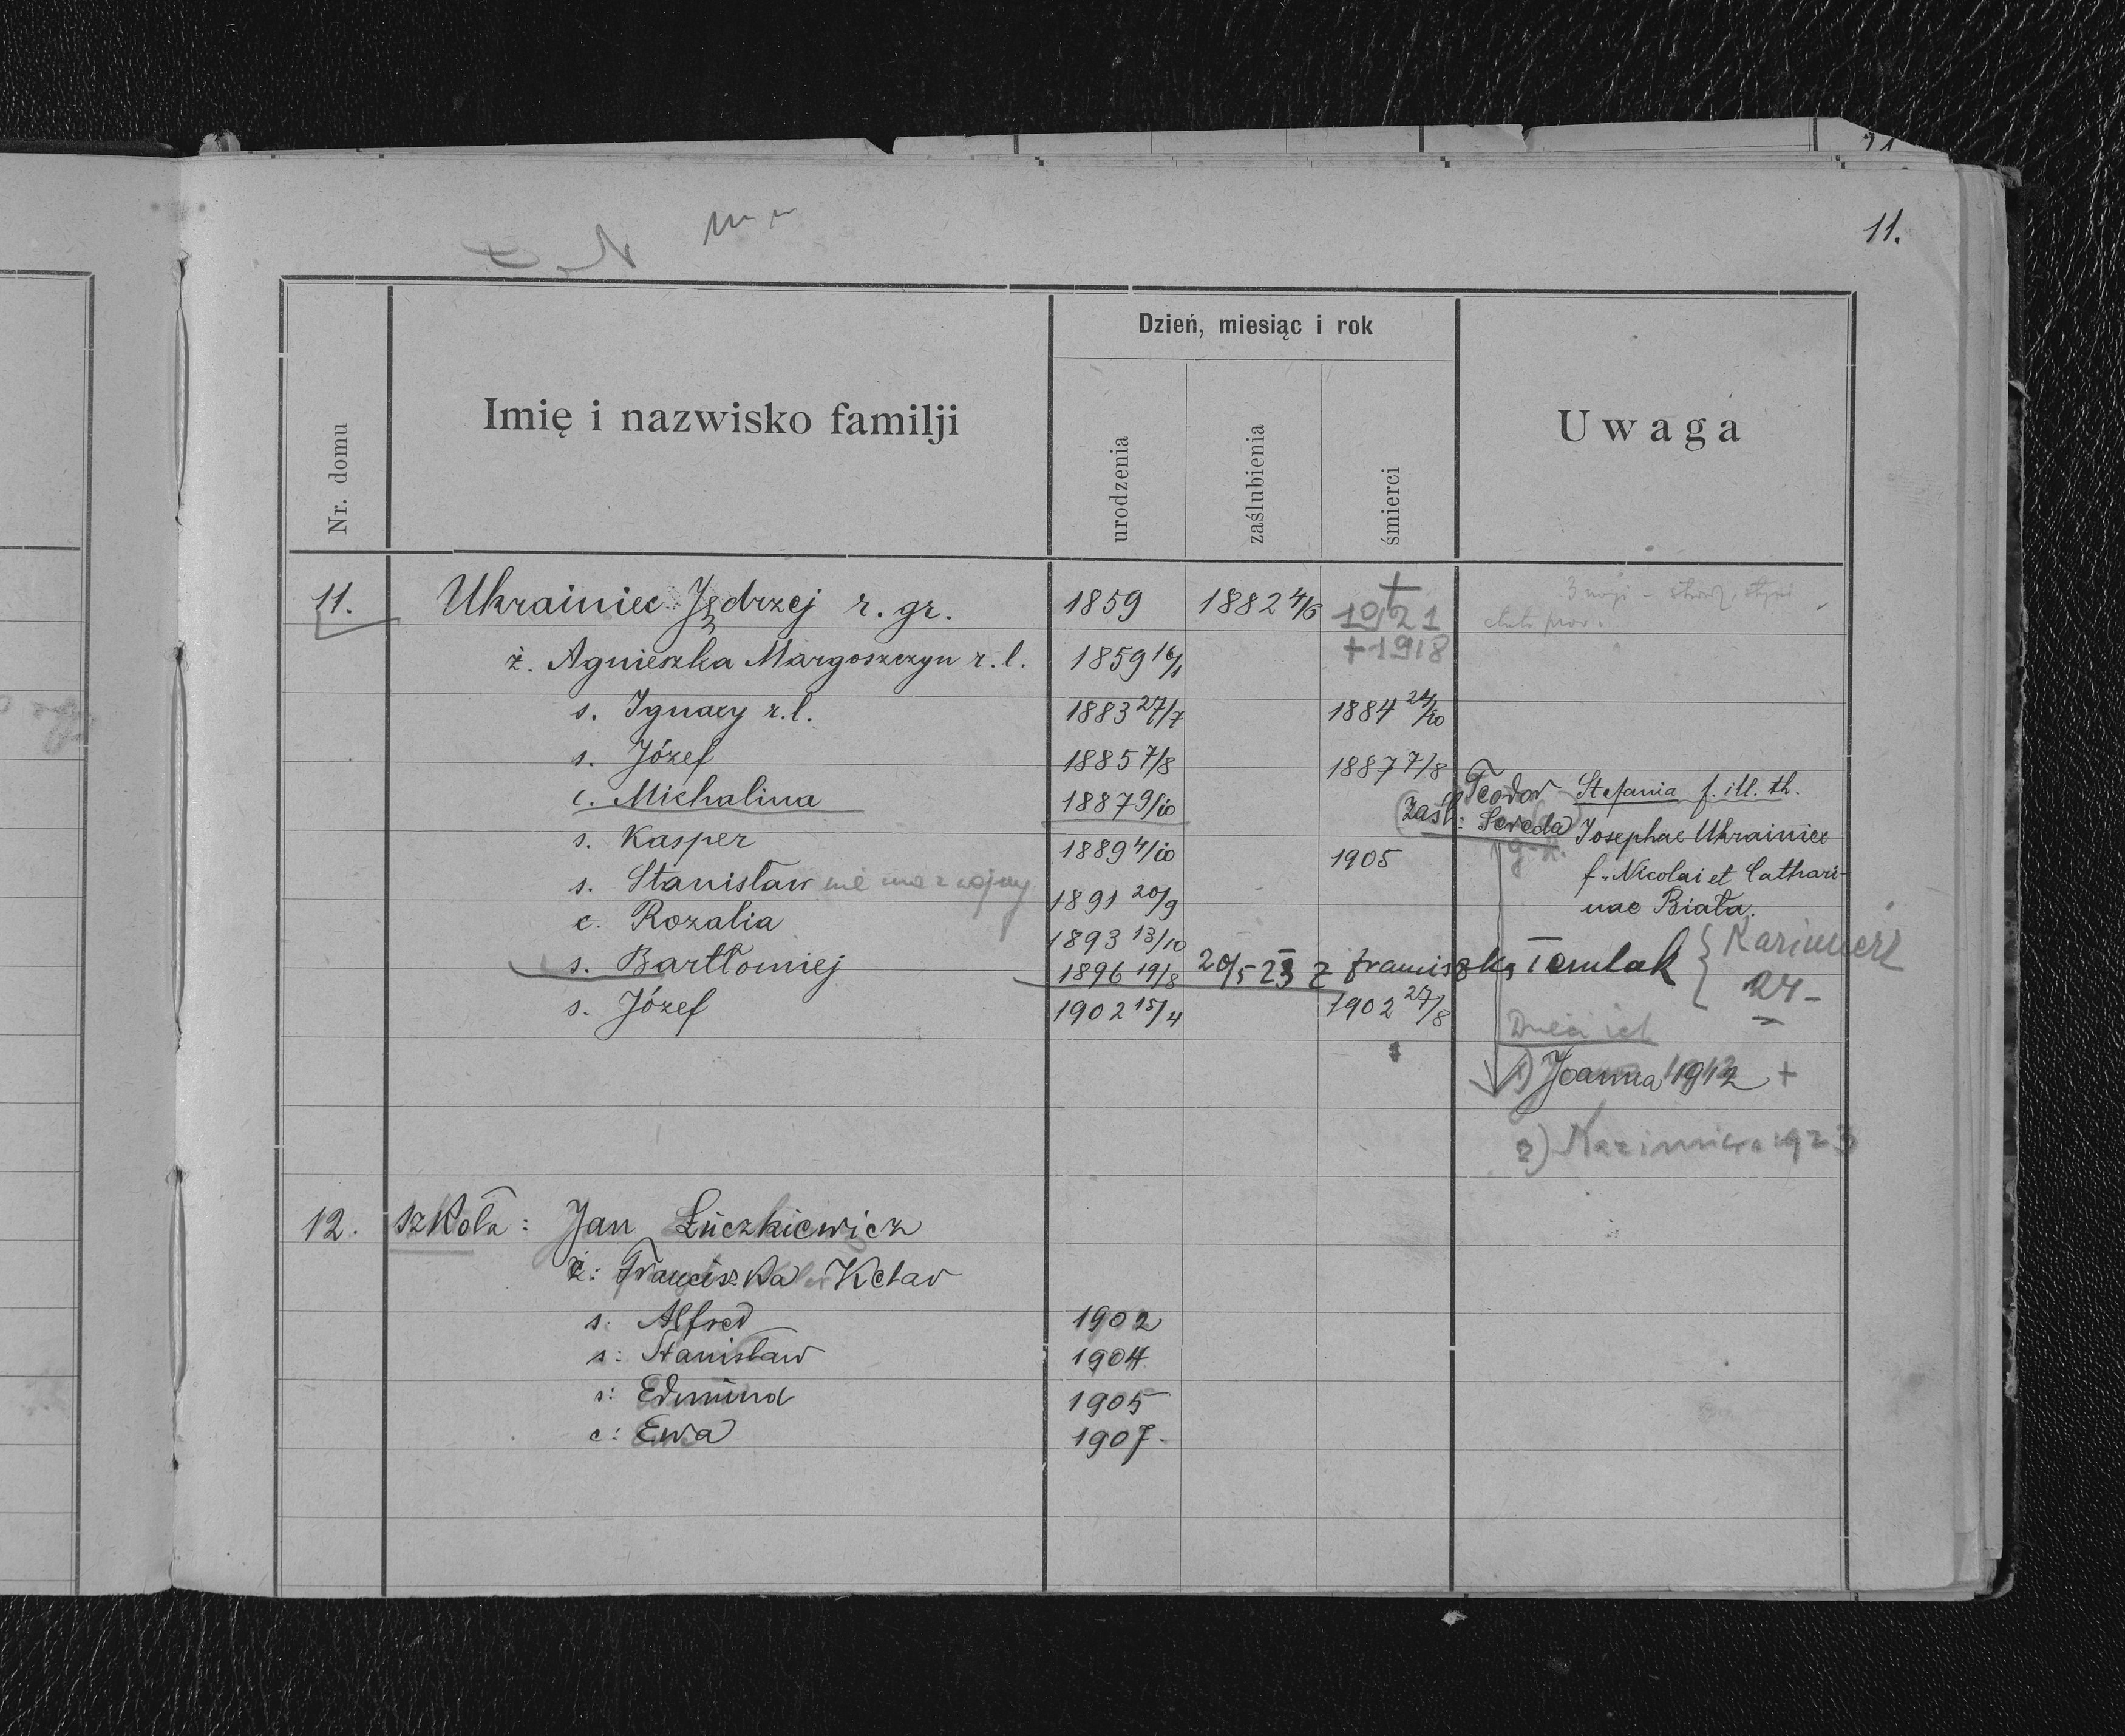 11.
Nr. domu
Imię i nazwisko familji
Dzień, miesiąc i rok
urodzenia
zaślubienia
śmierci
Uwaga
11. Ukrainiec Jędrzej r. gr. 1859 1882 4/6 + 1921
ż. Agnieszka Margoszczyn r. l. 1859 16/1 + 1918
s. Ignacy r. l. 1883 27/7 1884 24/10
s. Józef 1885 7/8 1887 7/8
c. Michalina 1887 9/10 (zaśl: Teodor Sereda)
Stefania f. ill. th.
Josephae Ukrainiec
f. Nicolai et Cathari-
nae Biała.
s. Kasper 1889 4/10 1905
s. Stanisław nie ma z wojny 1891 20/9
c. Rozalia 1893 13/10
s. Bartłomiej 1896 19/8 20/5 23 z Franciszką Temlak { Kazimierz
24 -
s. Józef 1902 15/4 1902 27/8
Dzieci ich
1) Joanna 1912 +
2) Kazimiera 1923
12. Szkoła: Jan Łuczkiewicz
ż: Franciszka Kelar
s: Alfred 1902
s: Stanisław 1904
s: Edmund 1905
c: Ewa 1907